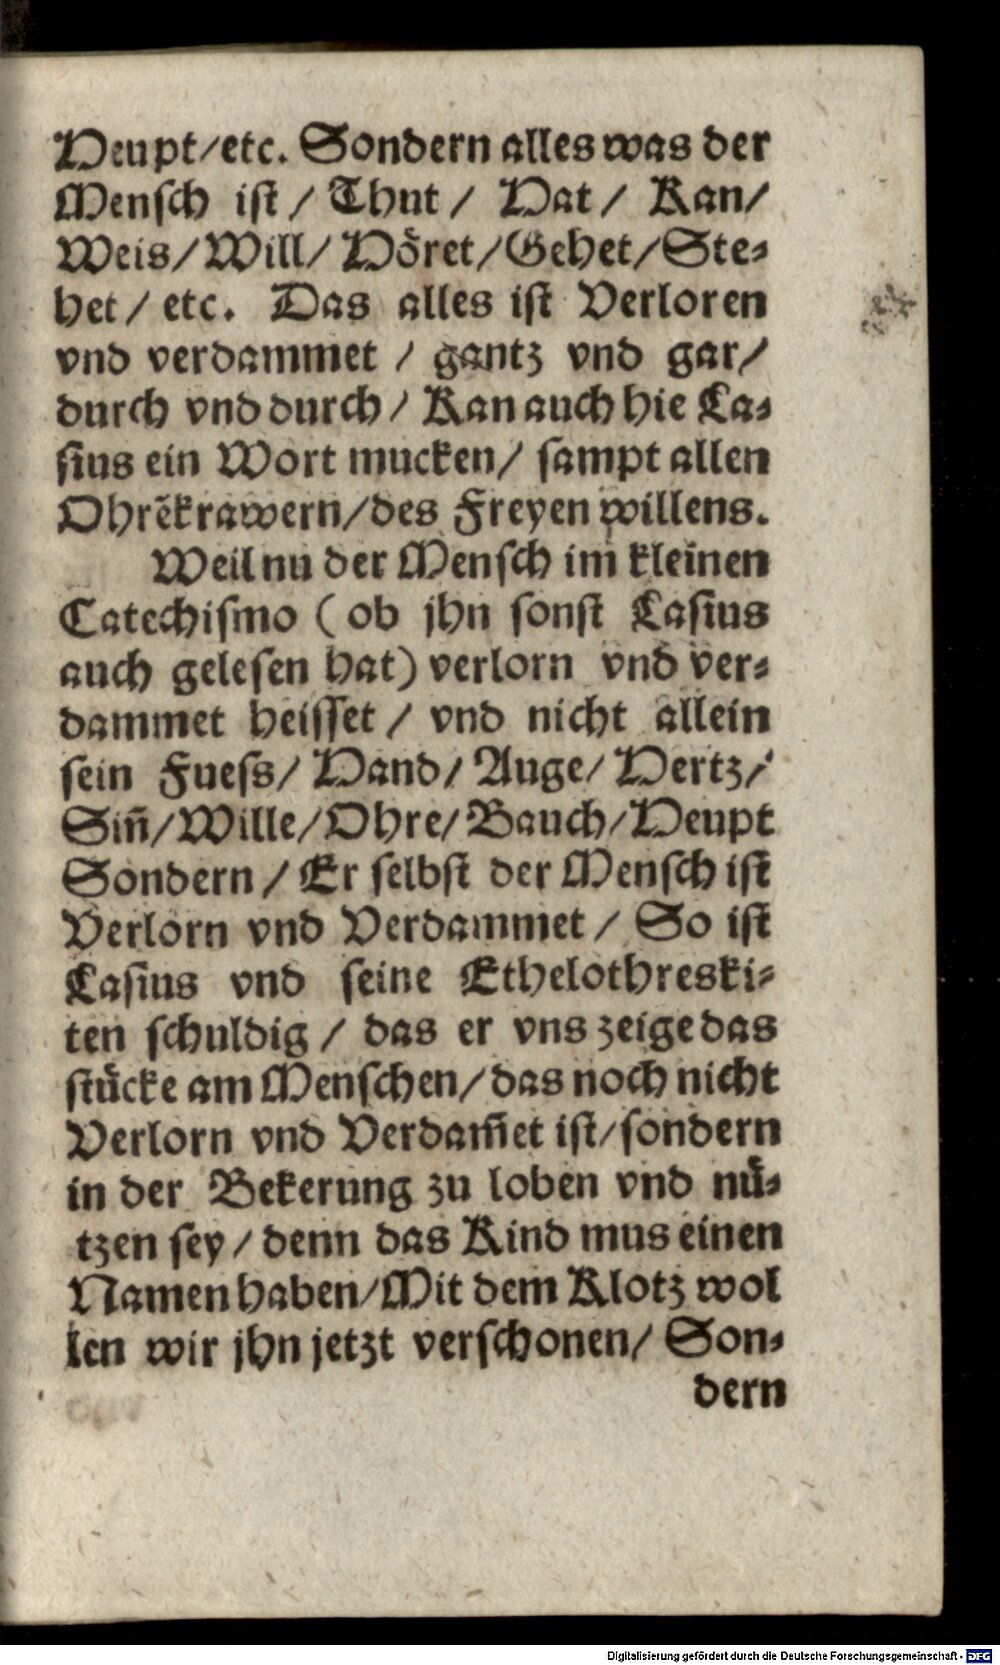 Heupt/etc. Sondern alles was der
Mensch ist / Thut / Hat / Kan/
Weis/Will/ Hoͤret/Gehet/Ste⸗
het / etc. Das alles ist Verloren
vnd verdammet / gantz vnd gar/
durch vnd durch/ Kan auch hie La⸗
sius ein Wort mucken/ sampt allen
Ohrẽkrawern/des Freyen willens.
Weil nu der Mensch im kleinen
Catechismo (ob jhn sonst Lasius
auch gelesen hat) verlorn vnd ver⸗
dammet heisset / vnd nicht allein
sein Fuess/ Hand/ Auge/ Hertz/
Siñ/Wille/Ohre/Bauch/Heupt
Sondern / Er selbst der Mensch ist
Verlorn vnd Verdammet / So ist
Lasius vnd seine Ethelothreski⸗
ten schuldig / das er vns zeige das
stuͤcke am Menschen/das noch nicht
Verlorn vnd Verdam̃et ist/sondern
in der Bekerung zu loben vnd nuͤ⸗
tzen sey / denn das Kind mus einen
Namen haben/Mit dem Klotz wol
len wir jhn jetzt verschonen/ Son⸗
dern
Digitalisierung gefördert durch die Deutsche Forschungsgemeinschaft - DFG